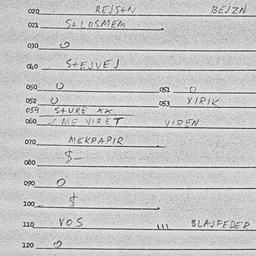 020 REJStN BEJZN
021 StIOSMEM
030 O
040 StEJVEJ
050 O 051 O
052 O 053 XIRIK
054 StURE XX
060 ME VIRET VIREN
070 MEKPAPIR
080 $-
090 O
100 $
110 VOS 111 BLAJFEDER
120 O